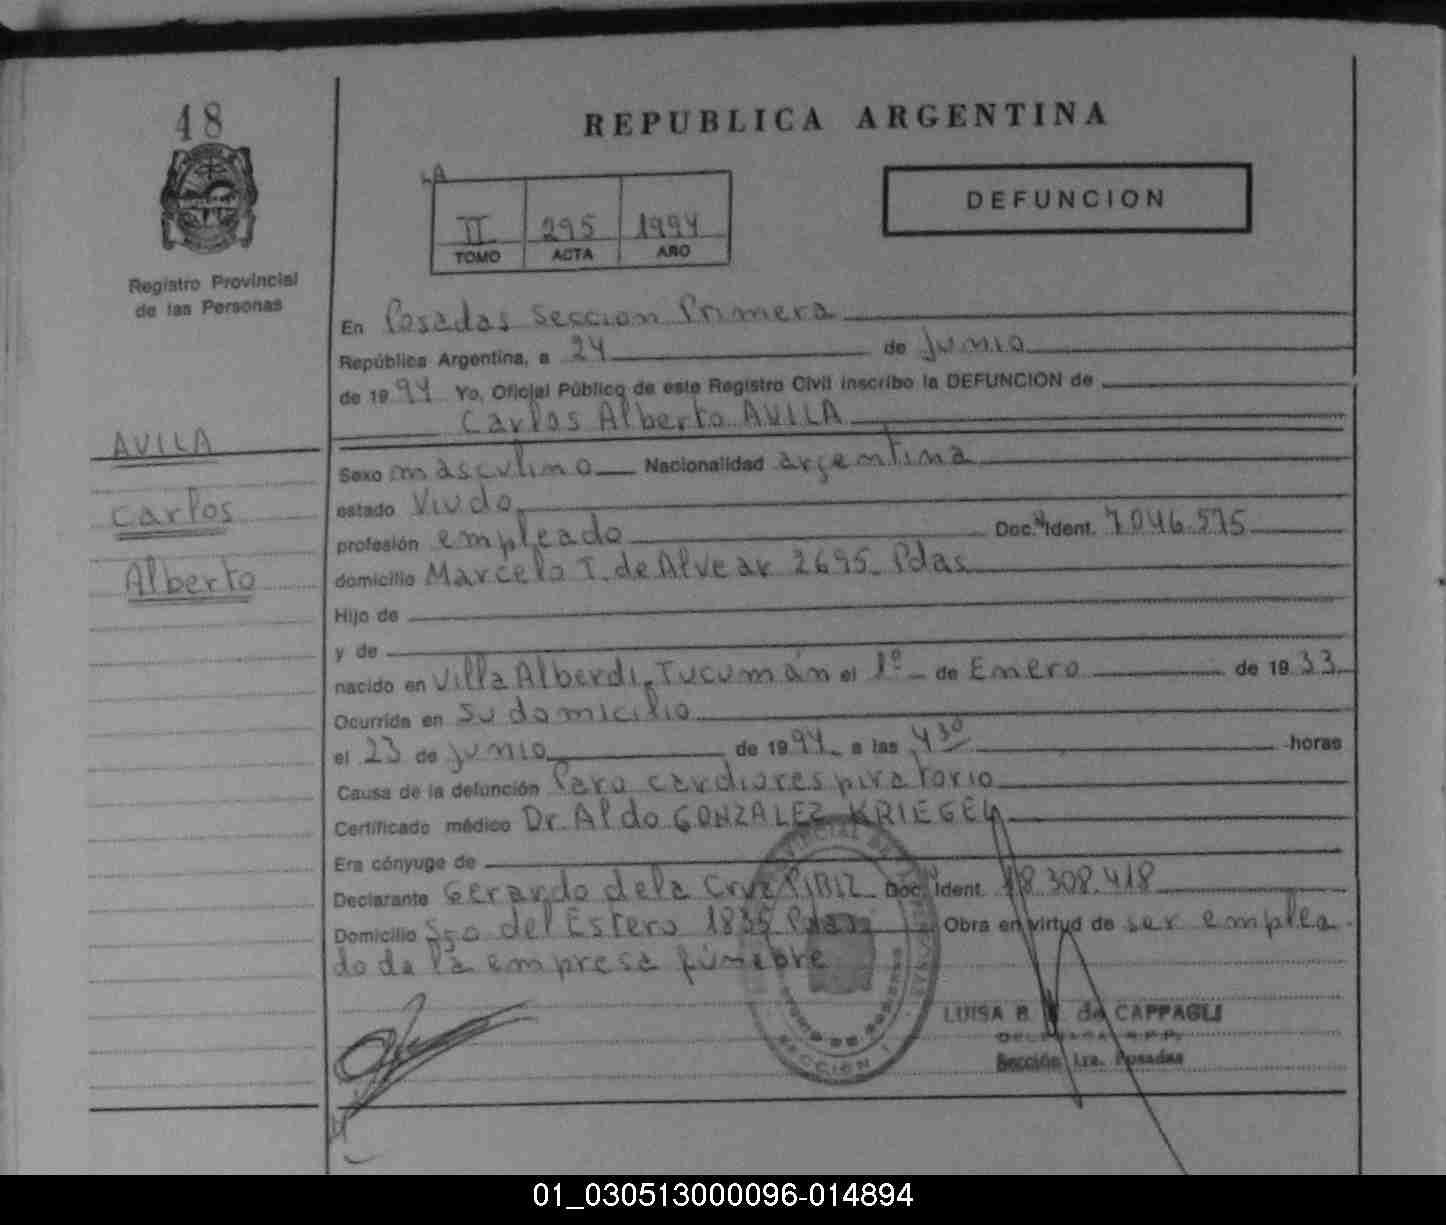 48
REPUBLICA ARGENTINA
DEFUNCION
II 295 1994
TOMO ACTA AÑO
Registro Provincial
de las Personas
En Posadas Seccion Primera
República Argentina, a 24 de junio
de 1994 Yo, Oficial Público de este Registro Civil inscribo la DEFUNCION de
Carlos Alberto AVILA
AVILA
Carlos
Alberto
Sexo masculino Nacionalidad argentina
estado Viudo
profesión empleado Doc. Ident. 7.046.575
domicilio Marcelo T. de Alvear 2695 Pdas
Hijo de
y de
nacido en Villa Alberdi, Tucumán el 1º de Enero de 1933
Ocurrida en Su domicilio
el 23 de junio de 1994 a las 4 30 horas
Causa de la defunción Paro cardiorespiratorio
Certificado médico Dr. Aldo GONZALEZ KRIEGEL
Era cónyuge de
Declarante Gerardo de la Cruz PIRIZ Doc. Ident. 18.308.418
Domicilio Sgo del Estero 1835 Pdas Obra en virtud de ser emplea
do de la empresa fúnebre
LUISA B. de CAPPAGLI
Sección 1ra. Posadas
SECCION 1
01_030513000096-014894